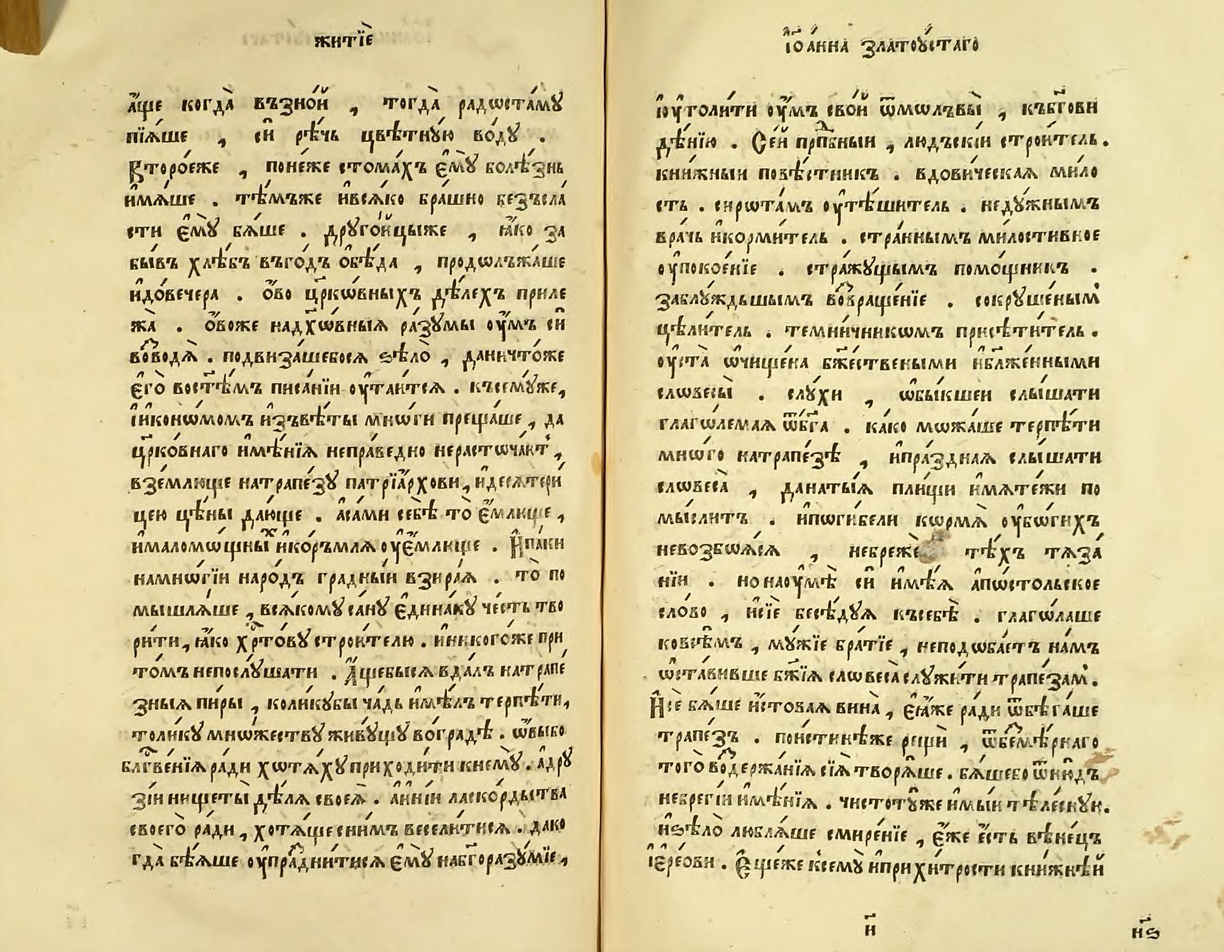 житїѐ
а҆́ще когда̀ възно́й , тогда̀ радѡста́мꙋ
пїѧ́ше , си̏ рѣ́чь цвѣ́тнꙋю во́дꙋ .
Второ́еже , поне́же стома́хъ є҆мꙋ̀ болѣ́знь
и҆мѧ́ше . тѣ́мъже и҆всѧ́ко бра́шно безъсла
сти є҆мꙋ̀ бѧ́ше . дрꙋго́йцыже , ꙗ҆́ко за
бы́въ хлѣ́бъ въго́дъ ѡ҆бѣ́да , продѡлъжа́ше
и҆довечера . ѻ҆́во цр҃кѡ́вныхъ дѣ́лехъ приле
жа̀ . ѻ҆́воже надх҃ѡ́вныѧ ра́зꙋмы оу҆́мъ си̏
во́водѧ̀ . подвиза́шебосѧ ѕѣ́ло̀ , даничто́же
є҆го̀ востѣ́мъ писа́нїи оу҆таи́тсѧ . къ́семꙋже,
і҆ико́нѡмомъ и҆звѣ́ты мнѡ́ги преща́ше , да
цр҃ко́внаго и҆мѣ́нїѧ непра́ведно нерастѡча́ютъ ,
взе́млюще натрапе́зꙋ патрїа́рхови , и҆десѧтери
цею цѣ́ны даю́ще . а҆са́ми себѣ̀ то̀ є҆́млюще ,
и҆маломѡ́щныхъ и҆ко́рьмлѧ оу҆е́млюще . И҆па́ки
намно́гїи наро́дъ гра́дный взира́ѧ . то̀ по
мышлѧ́ше , всѧ́комꙋ са́нꙋ є҆дина́кꙋ че́сть тво
ри́ти , ꙗ҆́ко хр҃то́вꙋ строи́телю . и҆никого́же при
то́мъ непослꙋ́шати . А҆́щебысѧ вда́лъ натрапе́
зныѧ пи́ры , коли́кꙋбы ча́дь и҆мѣ́лъ терпѣ́ти,
толи́кꙋ мнѡ́жествꙋ живꙋ́щꙋ во́градѣ . ѡ҆вы́бо
бл҃гве́нїѧ ра́ди хѡтѧ́хꙋ приходи́ти кне́мꙋ . а҆дрꙋ
зі́и нищеты̀ дѣ́лѧ своеѧ̀ . а҆и҆ні́и ласко́рдьства
своего̀ ра́ди , хотѧ́ще сни́мъ весели́тисѧ . да́ко
гда̀ бѣ́ѧше оу҆пра́днитисѧ є҆мꙋ̀ набг҃оразꙋмїе ,
і҆ѡа́нна златоꙋ́стаго
і҆оу҆толи́ти оу҆́мъ сво́й ѿмѡ́лъвы̀ , къбг҃ови
дѣ́нїю . Се́й прпⷣбныи , лю́дъскїи строи́тель .
кни́жныи повѣ́стникъ . вдови́ческаѧ ми́ло
сть . си́рѡта́мъ оу҆тѣ́шитель . недꙋ́жнымъ
вра́чь и҆корми́тель . стра́ннымъ ми́лостивное
оу҆покое́нїе . стра́жꙋщымъ помо́щникъ .
заблꙋ́ждьшымъ во́звраще́нїе . сокрꙋше́нымъ
цѣли́тель . темни́чникѡмъ присѣти́тель .
оу҆ста̀ ѡ҆чище́на бж҃е́ствеными и҆блаже́нными
слѡвесы̀ . слꙋ́хи , ѡ҆бы́кшеи слы́шати
глагѡ́лемаѧ ѿбг҃а . ка́ко мѡжа́ше терпѣ́ти
мнѡ́го натрапе́зѣ , и҆пра́зднаѧ слы́шати
слѡвеса̀ , данаты́ѧ пли́щи и҆мѧте́жи по
мы́слитъ . и҆пѡги́бели кѡ́рмѧ оу҆бѡ́гихъ
невозбѡ́ѧсѧ , небреже́ тѣ́хъ тѧза́
нїи . нонаоу҆мѣ̀ си̏ и҆мѣ́ѧ а҆пѡ́стольское
сло́во , и҆сїѐ бесѣ́дꙋѧ къ́себѣ̀ . глаго́лаше
ковсѣ́мъ , мꙋ́жїе бра́тїе , неподѡба́етъ на́мъ
ѡ҆ста́вивше бж҃їѧ слѡвеса̀ слꙋжи́ти трапе́замъ .
И҆сѐ бѧ́ше и҆́стоваѧ вина̀ , є҆ѧ́же ра́ди ѿбѣ́гаше
трапе́зъ . пои́стинѣже рещѝ , ѿбезмѣ́рнаго
того̀ во́держа́нїѧ сїѧ̀ творѧ́ше . бѧ́шебо ѿню́дъ
небрегі́и и҆мѣ́нїѧ . чистотꙋ́же и҆мы́и тѣле́снꙋю.
и҆ѕѣло̀ люблѧ́ше смире́нїе , є҆́же є҆́сть вѣне́цъ
і҆ере́ови . Е҆ще́же ксемꙋ̀ и҆прихи́трости кни́жнѣй
и҃
н҃ѕ